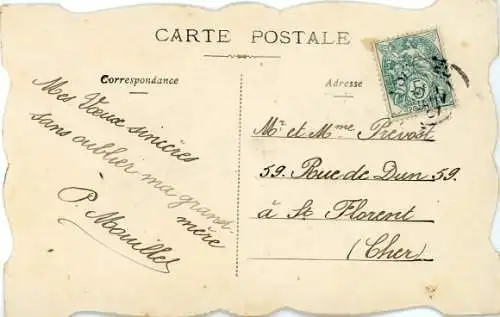 CARTE POSTALE
Correspondance
Mes Vœux sincères
sans oublier ma grand-
mère
P. Mouillet
Adresse
Mr et Mme Prevost
59. Rue de Dun 59.
à St Florent
(Cher)